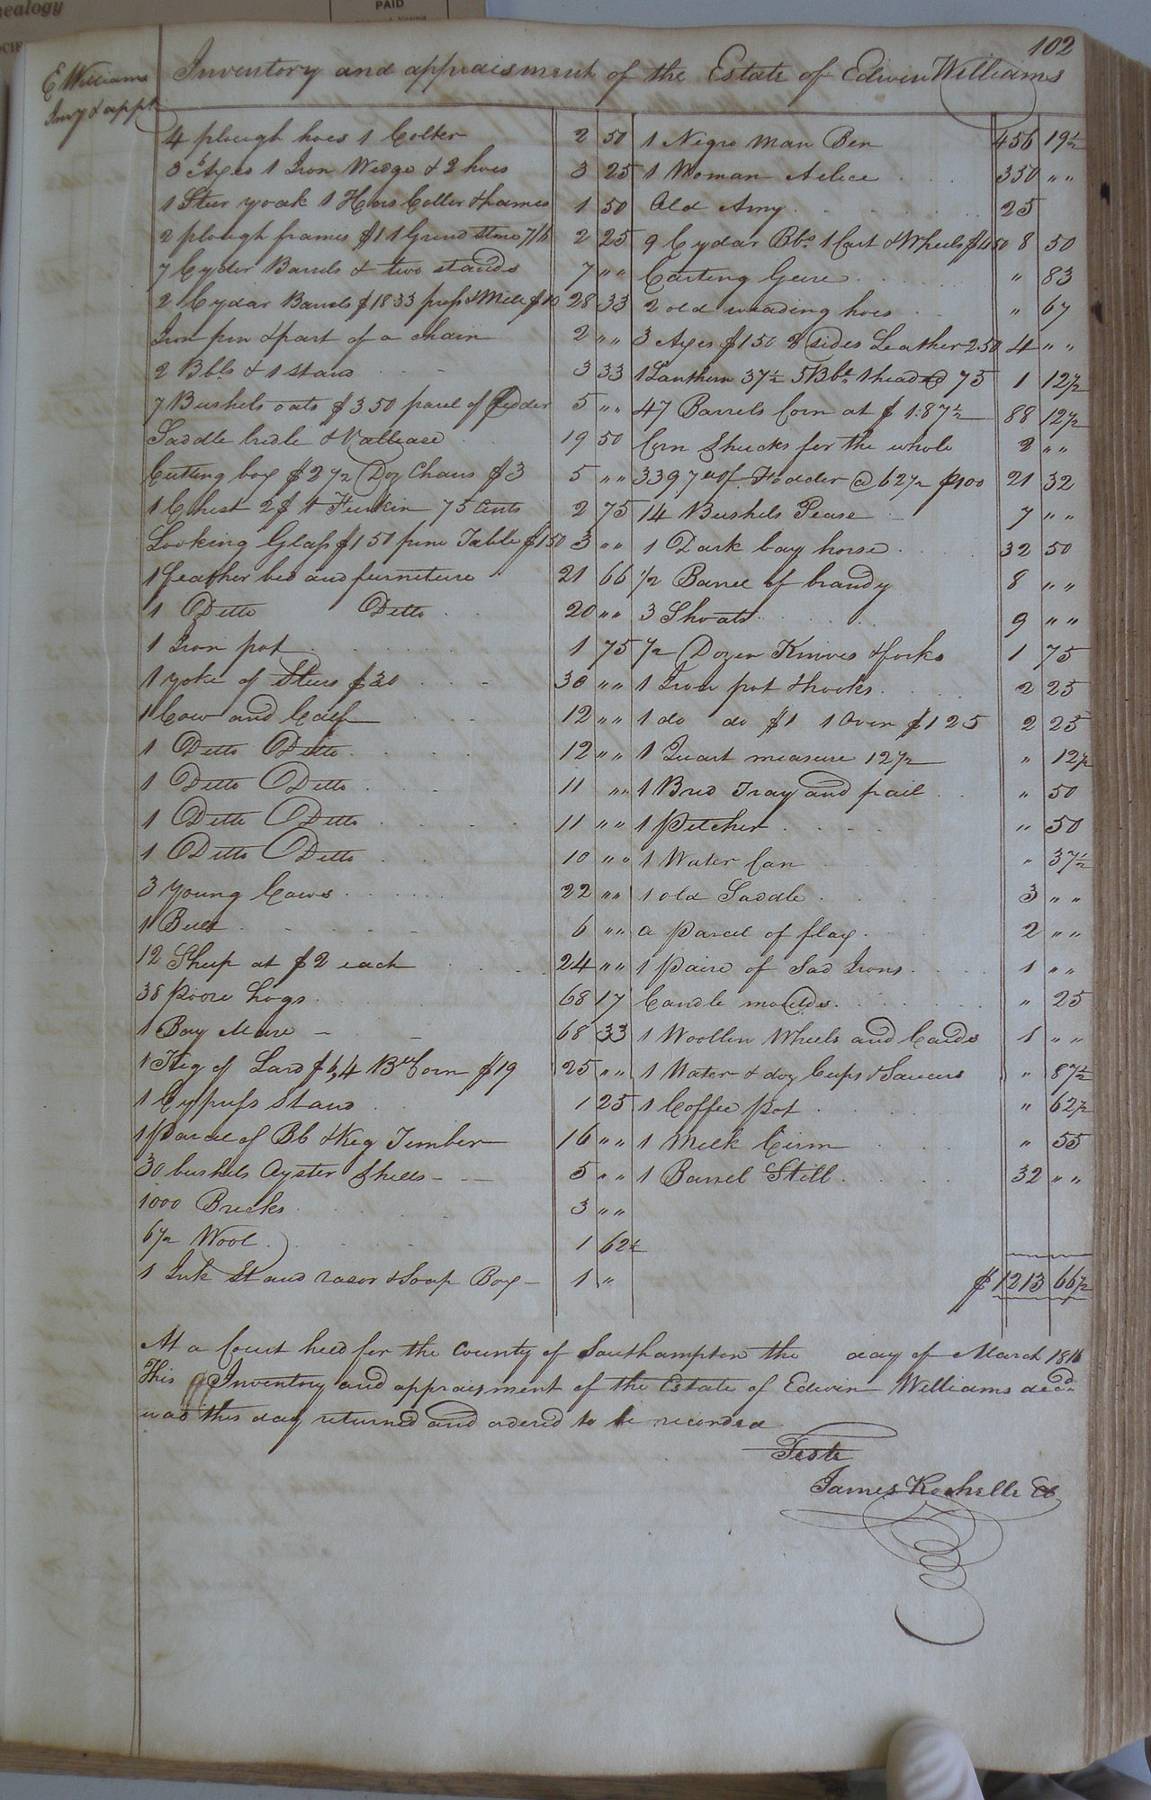 nealogy
PAID
102
E Williams
Inv'y & appt
Inventory and appraisment of the Estate of Edwin Williams
4 plough hoes 1 Colter 2 50
3 Axes 1 Iron Wedge & 2 hoes 3 25
1 Steer yoak 1 Hors Coller & hames 1 50
2 plough frames $1 1 Grind stone 7/6 2 25
7 Cyder Barrels & two stands 7 " "
2 Cydar Barrels $18 33 press & Mill $10 28 33
Iron pin & part of a chain 2 " "
2 Bbls & 1 stand 3 33
7 Bushels oats $3 50 parcel of fodder 5 " "
Saddle bridle & Valleace 19 50
Cutting box $2 1/2 Doz Chairs $3 5 " "
1 Chest 2$ 1 Firrkin 75 Cents 2 75
Looking Glass $1 50 pine Table $1 50 3 " "
1 feather bed and furniture 21 66
1 Ditto Ditto 20 " "
1 Iron pot 1 75
1 yoke of Steers $30 30 " "
1 Cow and Calf 12 " "
1 Ditto Ditto 12 " "
1 Ditto Ditto 11 " "
1 Ditto Ditto 11 " "
1 Ditto Ditto 10 " "
3 young Cows 22 " "
1 Bull 6 " "
12 Sheep at $2 each 24 " "
38 poore hogs 68 17
1 Bay Mare 68 33
1 Keg of Lard $6, 4 Bls Corn $19 25 " "
1 Cypress Stand 1 25
1 Parcel of Bb & Keg Timber 16 " "
30 bushels Oyster Shells 5 " "
1000 Bricks 3 " "
6 1/2 Wool 1 62 1/2
1 Ink Stand rasor & Soap Box 1 "
1 Negro Man Ben 456 19 1/2
1 Woman Aelice 350 " "
Old Amy 25
9 Cydar Bbs 1 Cart & Wheels $4 50 8 50
Carting Geere " 83
2 old weading hoes " 67
3 Axes $1 50 2 sides Leather 2.50 4 " "
1 Lanthern 37 1/2 5 Bbs 1 head @ 75 1 12 1/2
47 Barrels Corn at $1.87 1/2 88 12 1/2
Corn Shucks for the whole 2 " "
3397 of Fodder @ 62 1/2 p 100 21 32
14 Bushels Pease 7 " "
1 Dark bay horse 32 50
1/2 Barrel of brandy 8 " "
3 Shoats 9 " "
1/2 Dozen Knives & forks 1 75
1 Iron pot & hooks 2 25
1 do do $1 1 Oven $1 25 2 25
1 Quart measure 12 1/2 " 12 1/2
1 Bred Tray and pail " 50
1 Pitcher " 50
1 Water Can " 37 1/2
1 old Saddle 3 " "
a parcel of flax 2 " "
1 paire of Sad Irons 1 " "
Candle moulds " 25
1 Woollen Wheels and Cards 1 " "
1 Water & doz Cups & Saucers " 87 1/2
1 Coffee Pot " 62 1/2
1 Milk Cirm " 55
1 Barrel Still 32 " "
$1213 66 1/2
At a Court held for the County of Southampton the day of March 1816
This Inventory and appraisment of the Estate of Edwin Williams decd
was this day returned and ordered to be recorded
Teste
James Rochelle Cc